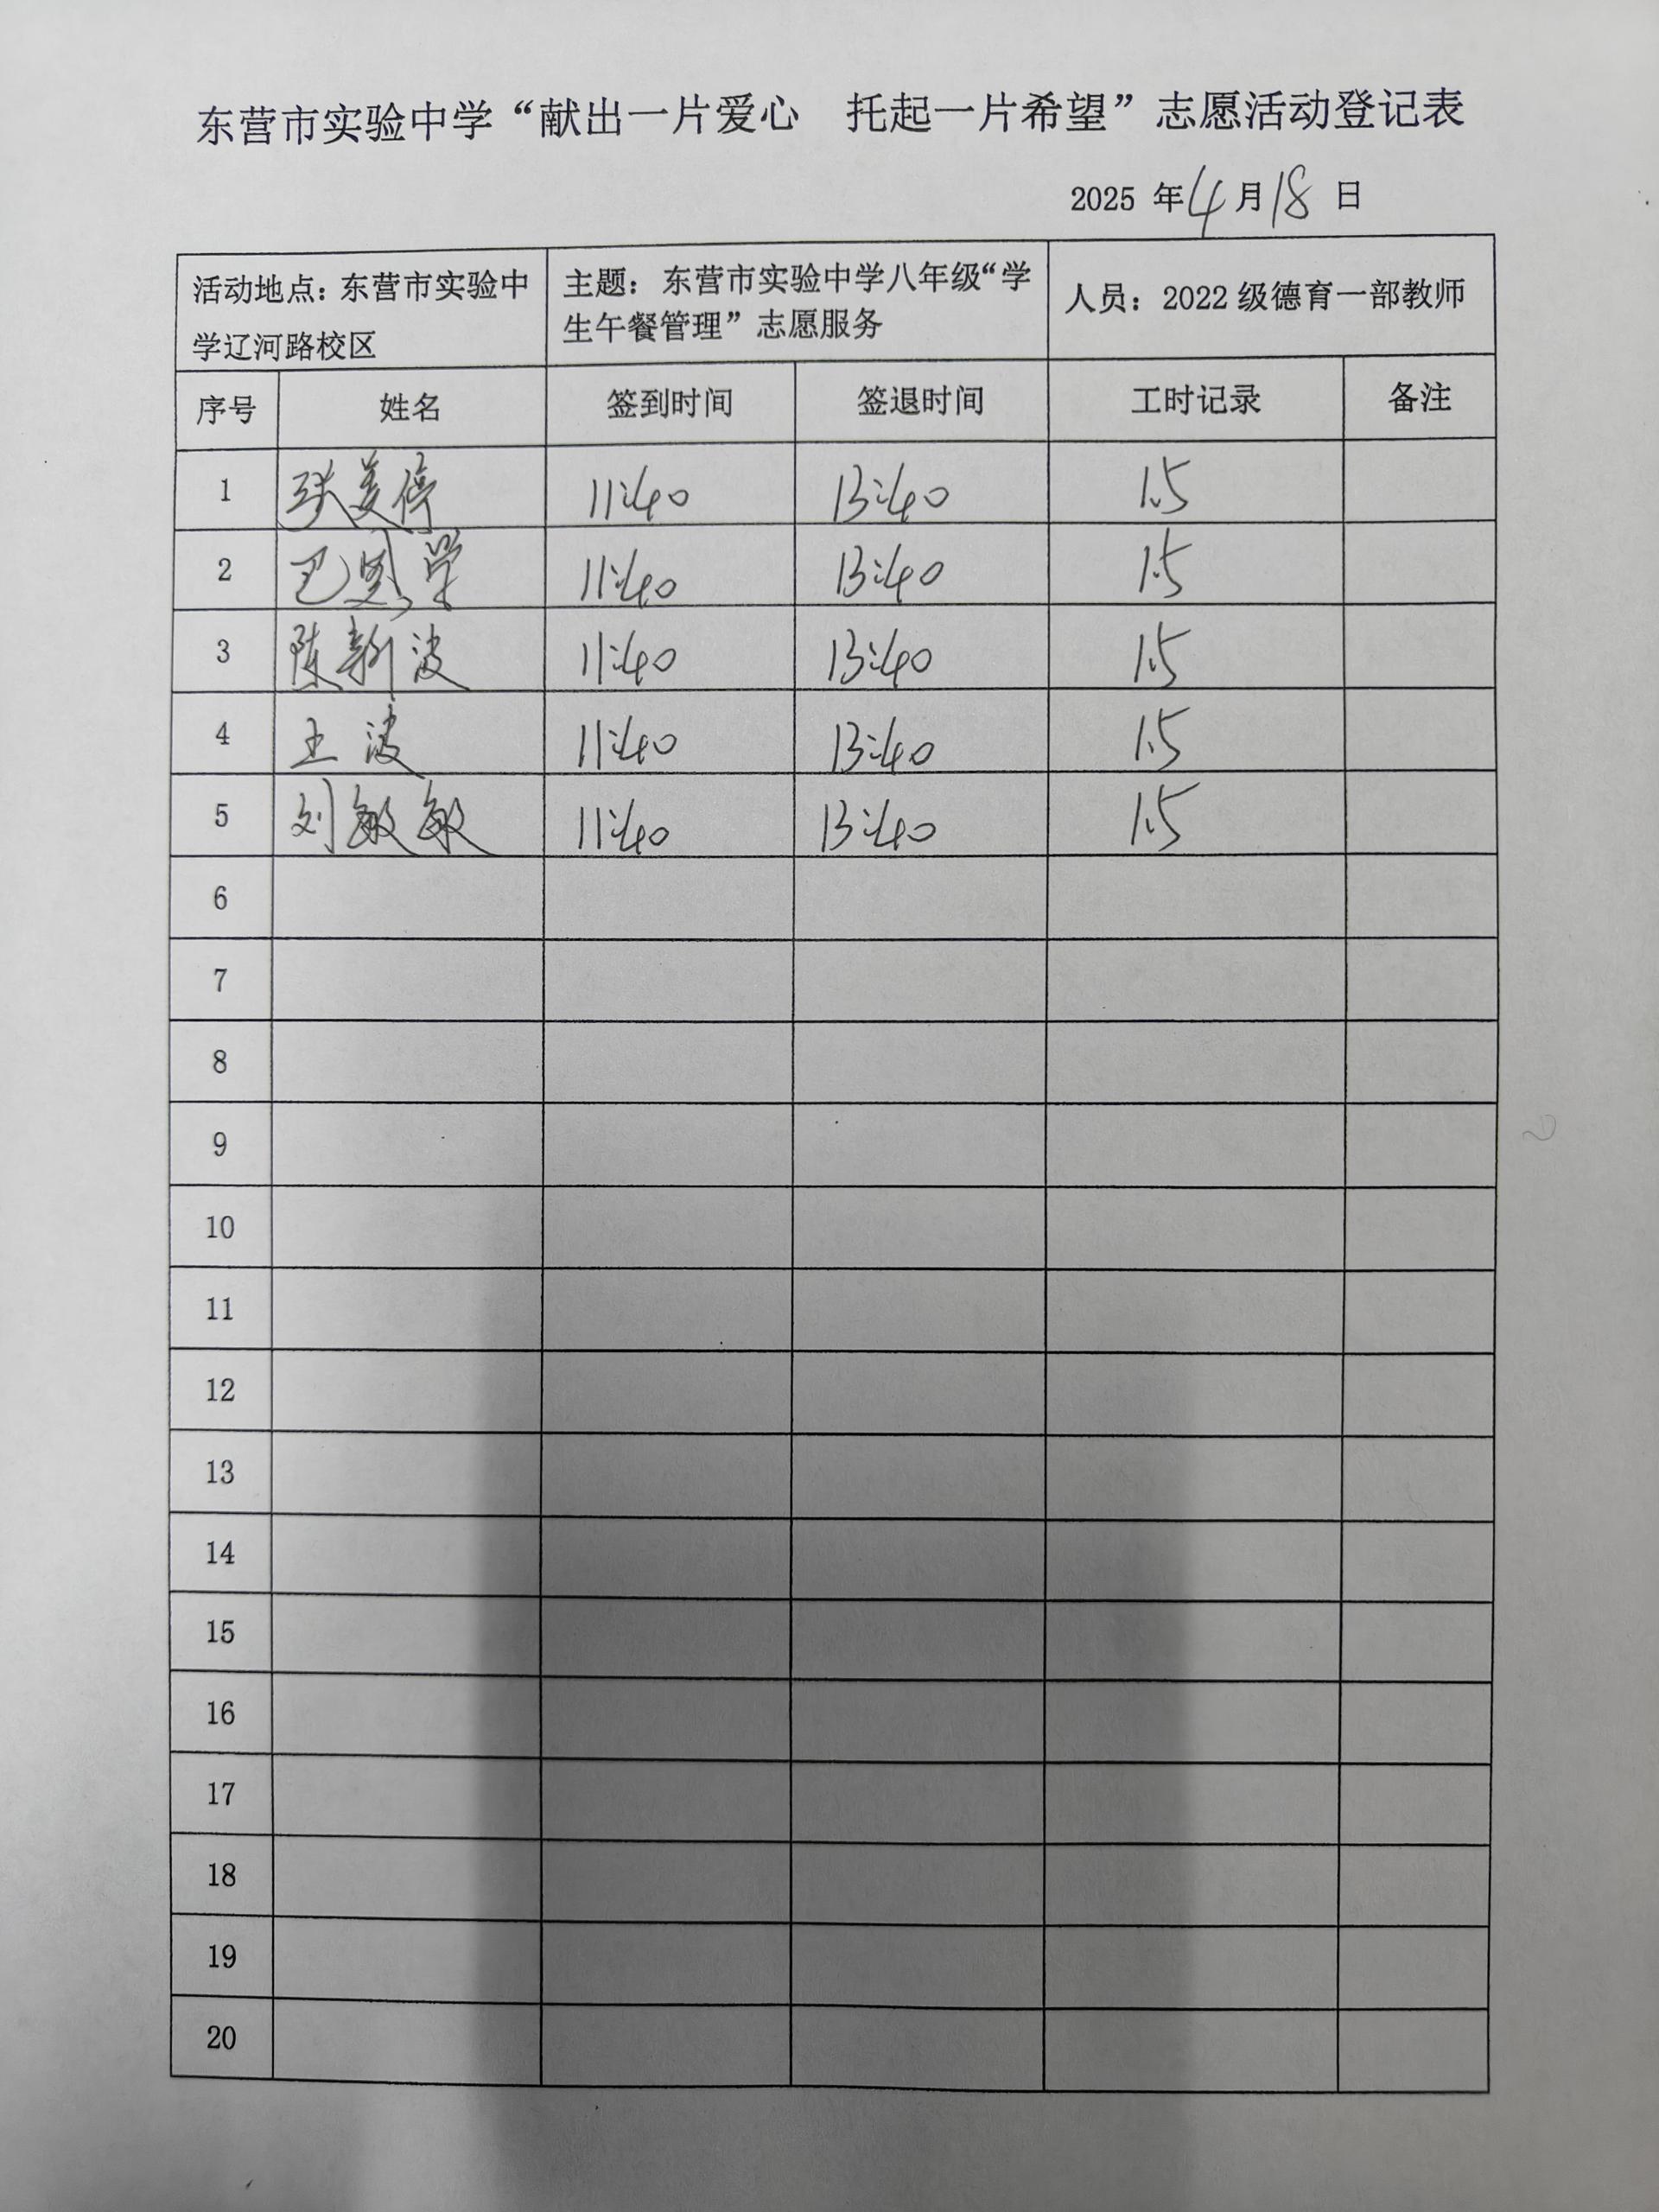 东营市实验中学“献出一片爱心 托起一片希望”志愿活动登记表
2025 年4月18 日
活动地点：东营市实验中
学辽河路校区
主题：东营市实验中学八年级“学
生午餐管理”志愿服务
人员：2022 级德育一部教师
序号 姓名 签到时间 签退时间 工时记录 备注
1 张美停 11:40 13:40 1.5
2 巴 学 11:40 13:40 1.5
3 陈新波 11:40 13:40 1.5
4 王波 11:40 13:40 1.5
5 刘敏敏 11:40 13:40 1.5
6
7
8
9
10
11
12
13
14
15
16
17
18
19
20